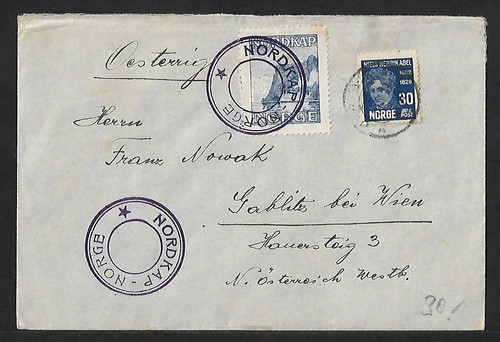 Oesterreig
NORDKAP
NORGE
NORDKAP - NORGE
NIELS HENRIK ABEL
1802
1829
30
NORGE
Herrn
Franz Nowak
Gablitz bei Wien
Hauersteig 3
N. Österreich Westb.
NORDKAP - NORGE
30.-